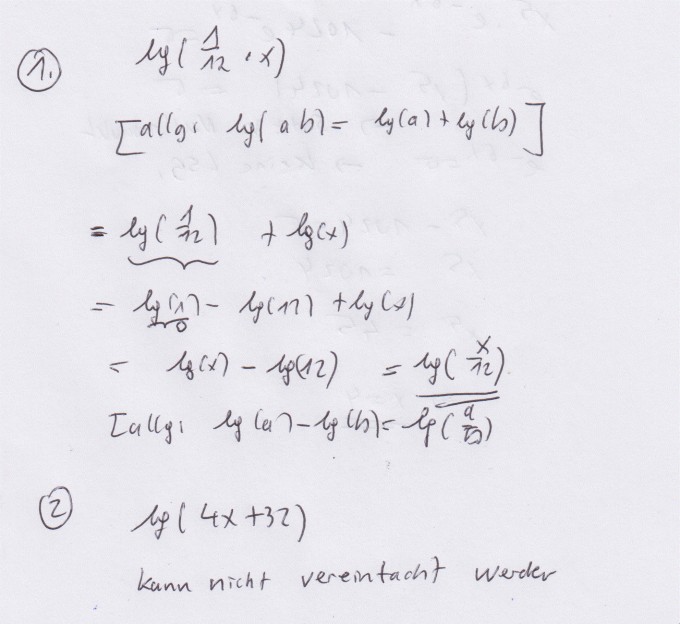 1. lg(1/12 · x)
[allg: lg(ab) = lg(a) + lg(b)]
= lg(1/12) + lg(x)
= lg(1) - lg(12) + lg(x)
0
= lg(x) - lg(12) = lg(x/12)
[allg: lg(a) - lg(b) = lg(a/b)
2 lg(4x+32)
kann nicht vereinfacht werden